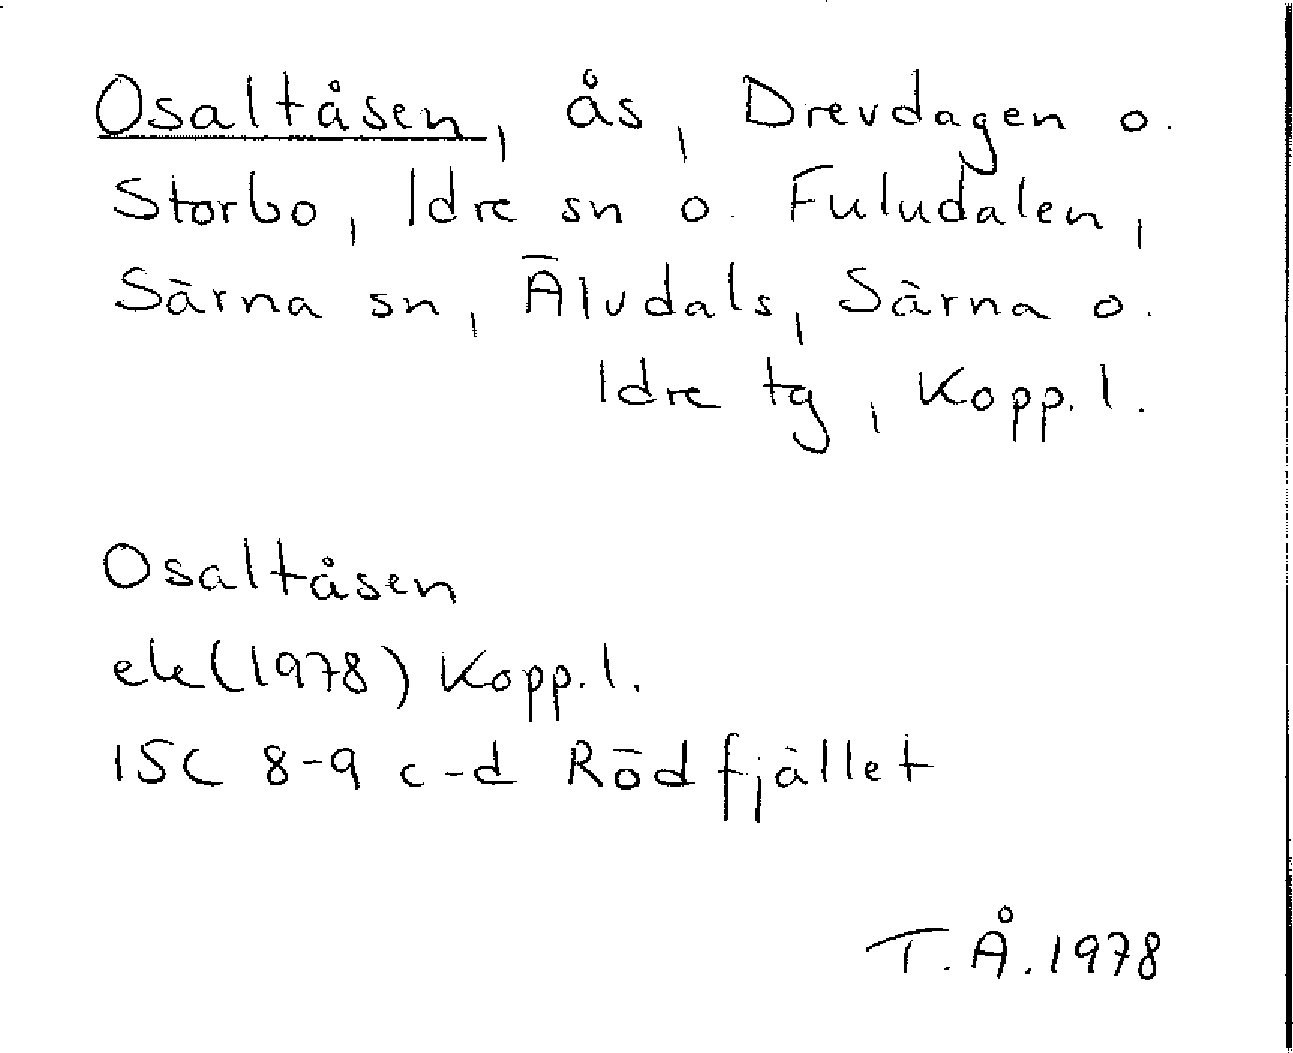 Osaltåsen, ås, Drevdagen o.
Storbo, Idre sn o. Fuludalen,
Särna sn, Älvdals, Särna o.
Idre tg, Kopp. l.
Osaltåsen
ek (1978) Kopp. l.
15C 8-9 c-d Rödfjället
T. Å. 1978